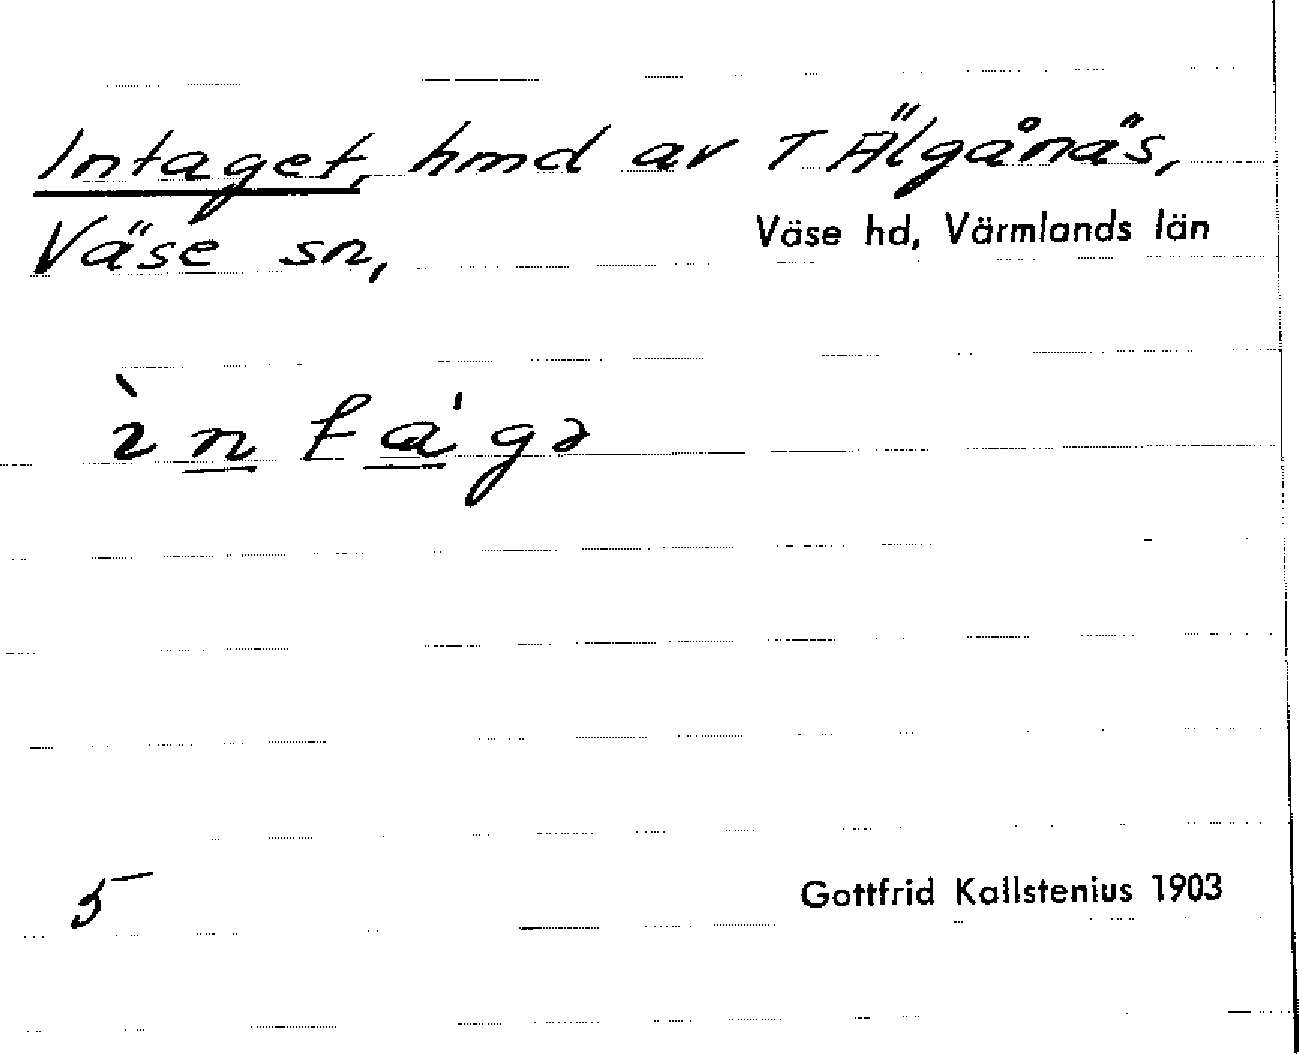 Intaget, hmd av T Älgånäs,
Väse sn, Väse hd, Värmlands län
ìn tágə
5
Gottfrid Kallstenius 1903